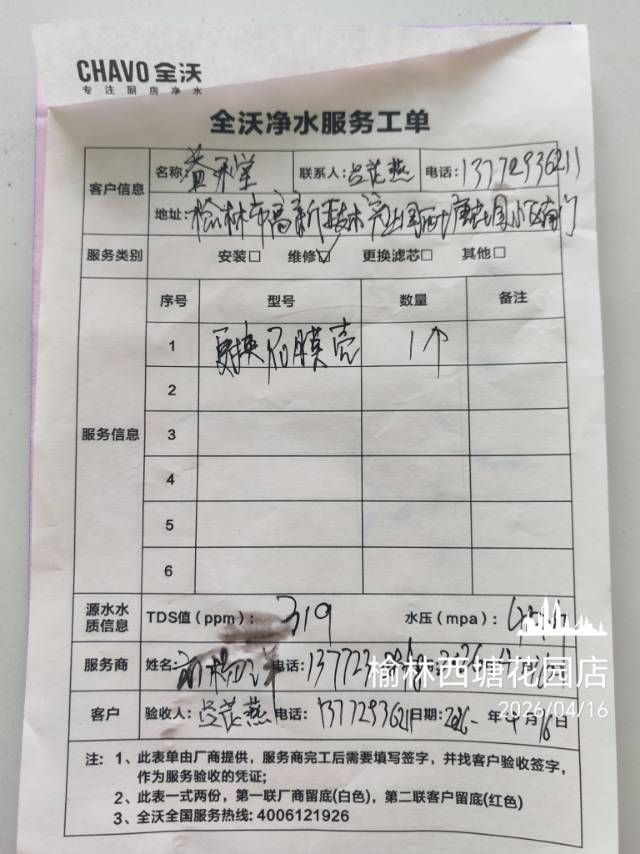 CHAVO 全沃
专注厨房净水
全沃净水服务工单
客户信息
名称: 益禾堂 联系人: 吕花燕 电话: 13772936211
地址: 榆林市高新技术产业园西塘花园小区南门
服务类别 安装□ 维修☑ 更换滤芯□ 其他□
服务信息
序号 型号 数量 备注
1 更换 膜壳 1个
2
3
4
5
6
源水水质信息 TDS值（ppm）: 319 水压（mpa）:
服务商 姓名: 电话: 日期:
客户 验收人: 吕花燕 电话: 13772936211 日期: 2026年 4月16日
榆林西塘花园店
2026/04/16
注: 1、此表单由厂商提供，服务商完工后需要填写签字，并找客户验收签字，
作为服务验收的凭证;
2、此表一式两份，第一联厂商留底(白色)，第二联客户留底(红色)
3、全沃全国服务热线: 4006121926